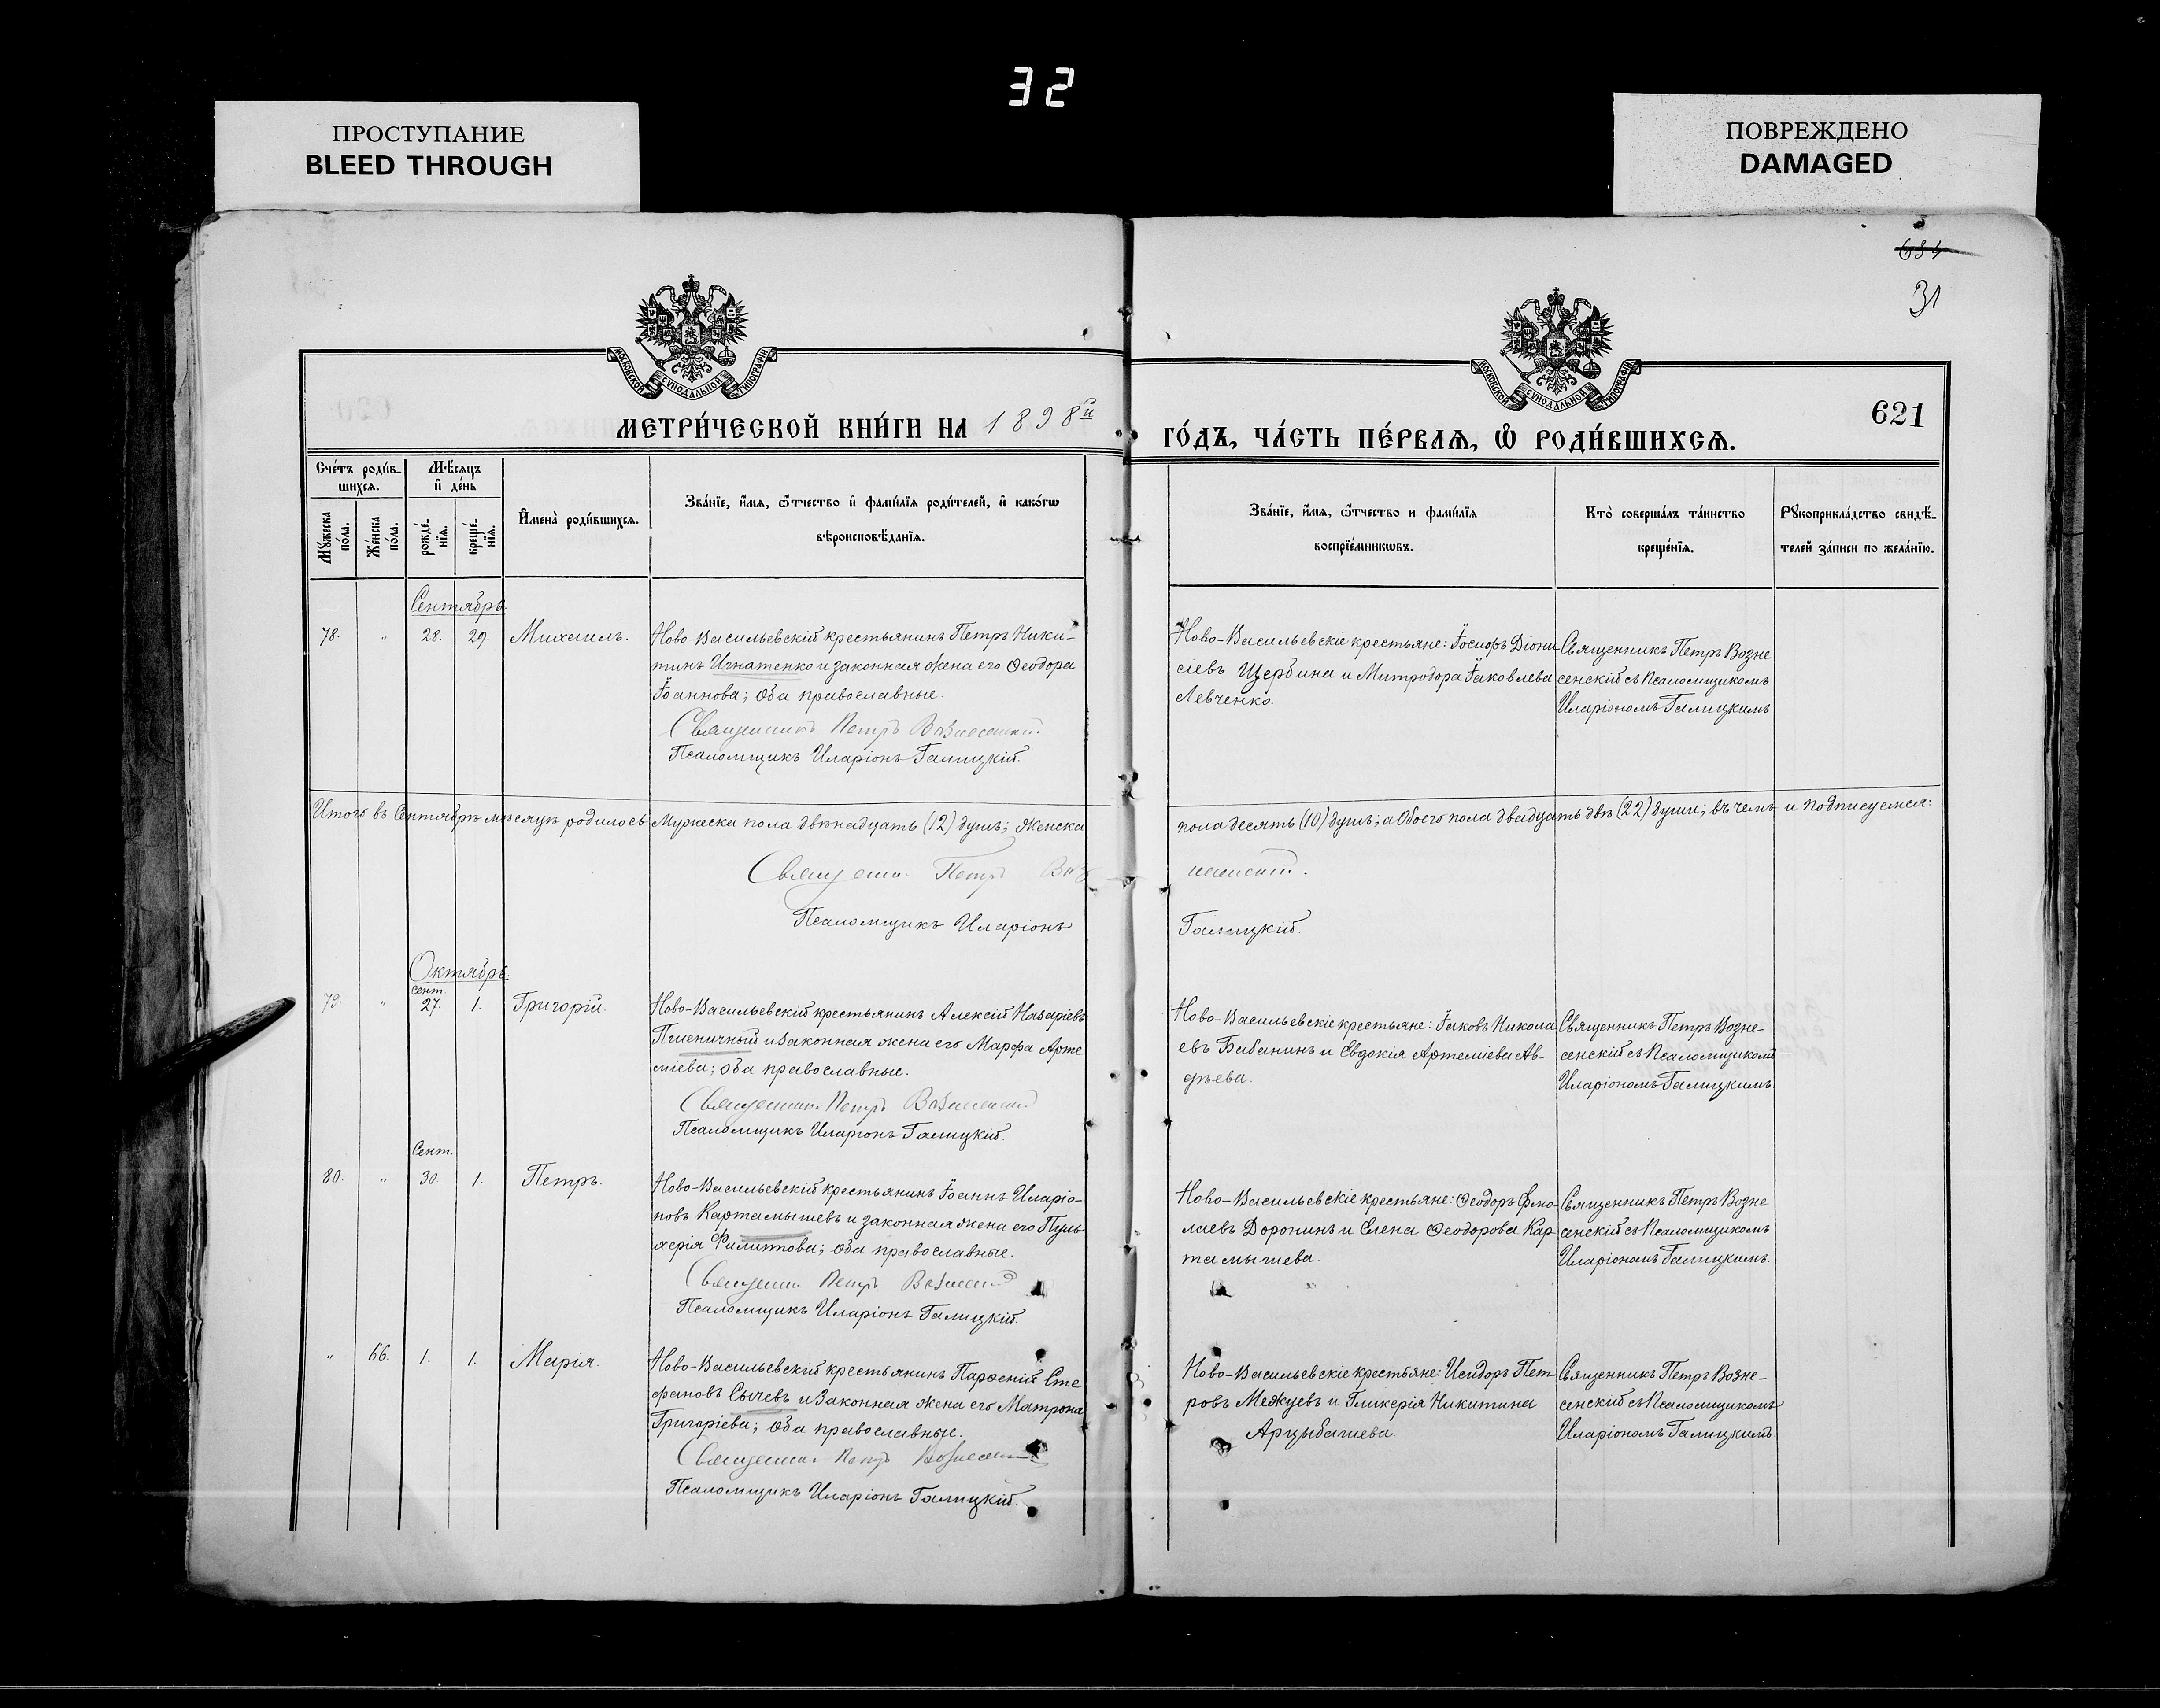 32
ПРОСТУПАНИЕ
BLEED THROUGH
ПОВРЕЖДЕНО
DAMAGED
31
621
МОСКОВСКОЙ СѴНОДАЛЬНОЙ ТИПОГРАФІИ
МОСКОВСКОЙ СѴНОДАЛЬНОЙ ТИПОГРАФІИ
МЕТРИ́ЧЕСКОЙ КНИ́ГИ НА 1898й
ГО́ДЪ, ЧА́СТЬ ПЕ́РВАѦ, Ѽ РОДИ́ВШИХСѦ.
Сче́тъ роди́в-
шихсѧ.
Мꙋжеска по́ла.
Же́нска по́ла.
Мѣ́сѧцъ
и҆ де́нь
рожде́-
нїѧ.
креще́-
нїѧ.
И҆мена̀ роди́вшихсѧ.
Зва́нїе, и҆́мѧ, ѻ҆́тчество и҆ фами́лїѧ роди́телей, и҆ како́гѡ
вѣроисповѣ́данїѧ.
Зва́нїе, и҆́мѧ, ѻ҆́тчество и фами́лїѧ
воспрїе́мникѡвъ.
Кто̀ соверша́лъ та́инство
креще́нїѧ.
Рꙋкоприкла́дство свидѣ́-
телей за́писи по жела́нїю.
Сентябрь
78. " 28. 29. Михаилъ.
Ново-Васильевскій крестьянинъ Петръ Ники-
тинъ Игнатенко и законная жена его Ѳеодора
Іоаннова; оба православные.
Священникъ Петръ Вознесенскій
Псаломщикъ Иларіонъ Галицкій.
Ново-Васильевскіе крестьяне: Іосифъ Діони
сіевъ Щербина и Митродора Іаковлева
Левченко.
Священникъ Петръ Возне
сенскій съ Псаломщикомъ
Иларіономъ Галицкимъ
Итого въ Сентябрѣ мѣсяцѣ родилось: Мужеска пола двѣнадцать (12) душъ; Женска
пола десять (10) душъ; а обоего пола двадцать двѣ (22) души; въ чемъ и подписуемся:
Священникъ Петръ Воз
несенскій.
Псаломщикъ Иларіонъ
Галицкій.
Октябрь.
Сент.
79. " 27. 1. Григорій.
Ново-Васильевскій крестьянинъ Алексій Назаріевъ
Пшеничный и законная жена его Марфа Арте
міева; оба православные.
Священникъ Петръ Вознесенскій
Псаломщикъ Иларіонъ Галицкій.
Ново-Васильевскіе крестьяне: Іаковъ Никола
евъ Бабанинъ и Евдокія Артеміева Ав-
дѣева.
Священникъ Петръ Возне-
сенскій съ Псаломщикомъ
Иларіономъ Галицкимъ
Сент.
80. " 30. 1. Петръ.
Ново-Васильевскій крестьянинъ Іоаннъ Иларіо-
новъ Картамышевъ и законная жена его Пуль
херія Филиппова; оба православные.
Священникъ Петръ Вознесенскій
Псаломщикъ Иларіонъ Галицкій.
Ново-Васильевскіе крестьяне: Ѳеодоръ Ермо-
лаевъ Доронинъ и Елена Ѳеодорова Кар
тамышева.
Священникъ Петръ Возне
сенскій съ Псаломщикомъ
Иларіономъ Галицкимъ.
" 66. 1. 1. Марія.
Ново-Васильевскій крестьянинъ Парѳеній Сте
фановъ Сычевъ и Законная жена его Матрона
Григоріева; оба православные.
Священникъ Петръ Вознесенскій
Псаломщикъ Иларіонъ Галицкій.
Ново-Васильевскіе крестьяне: Исидоръ Пет
ровъ Межуевъ и Гликерія Никитина
Арцыбашева.
Священникъ Петръ Возне-
сенскій съ Псаломщикомъ
Иларіономъ Галицкимъ.